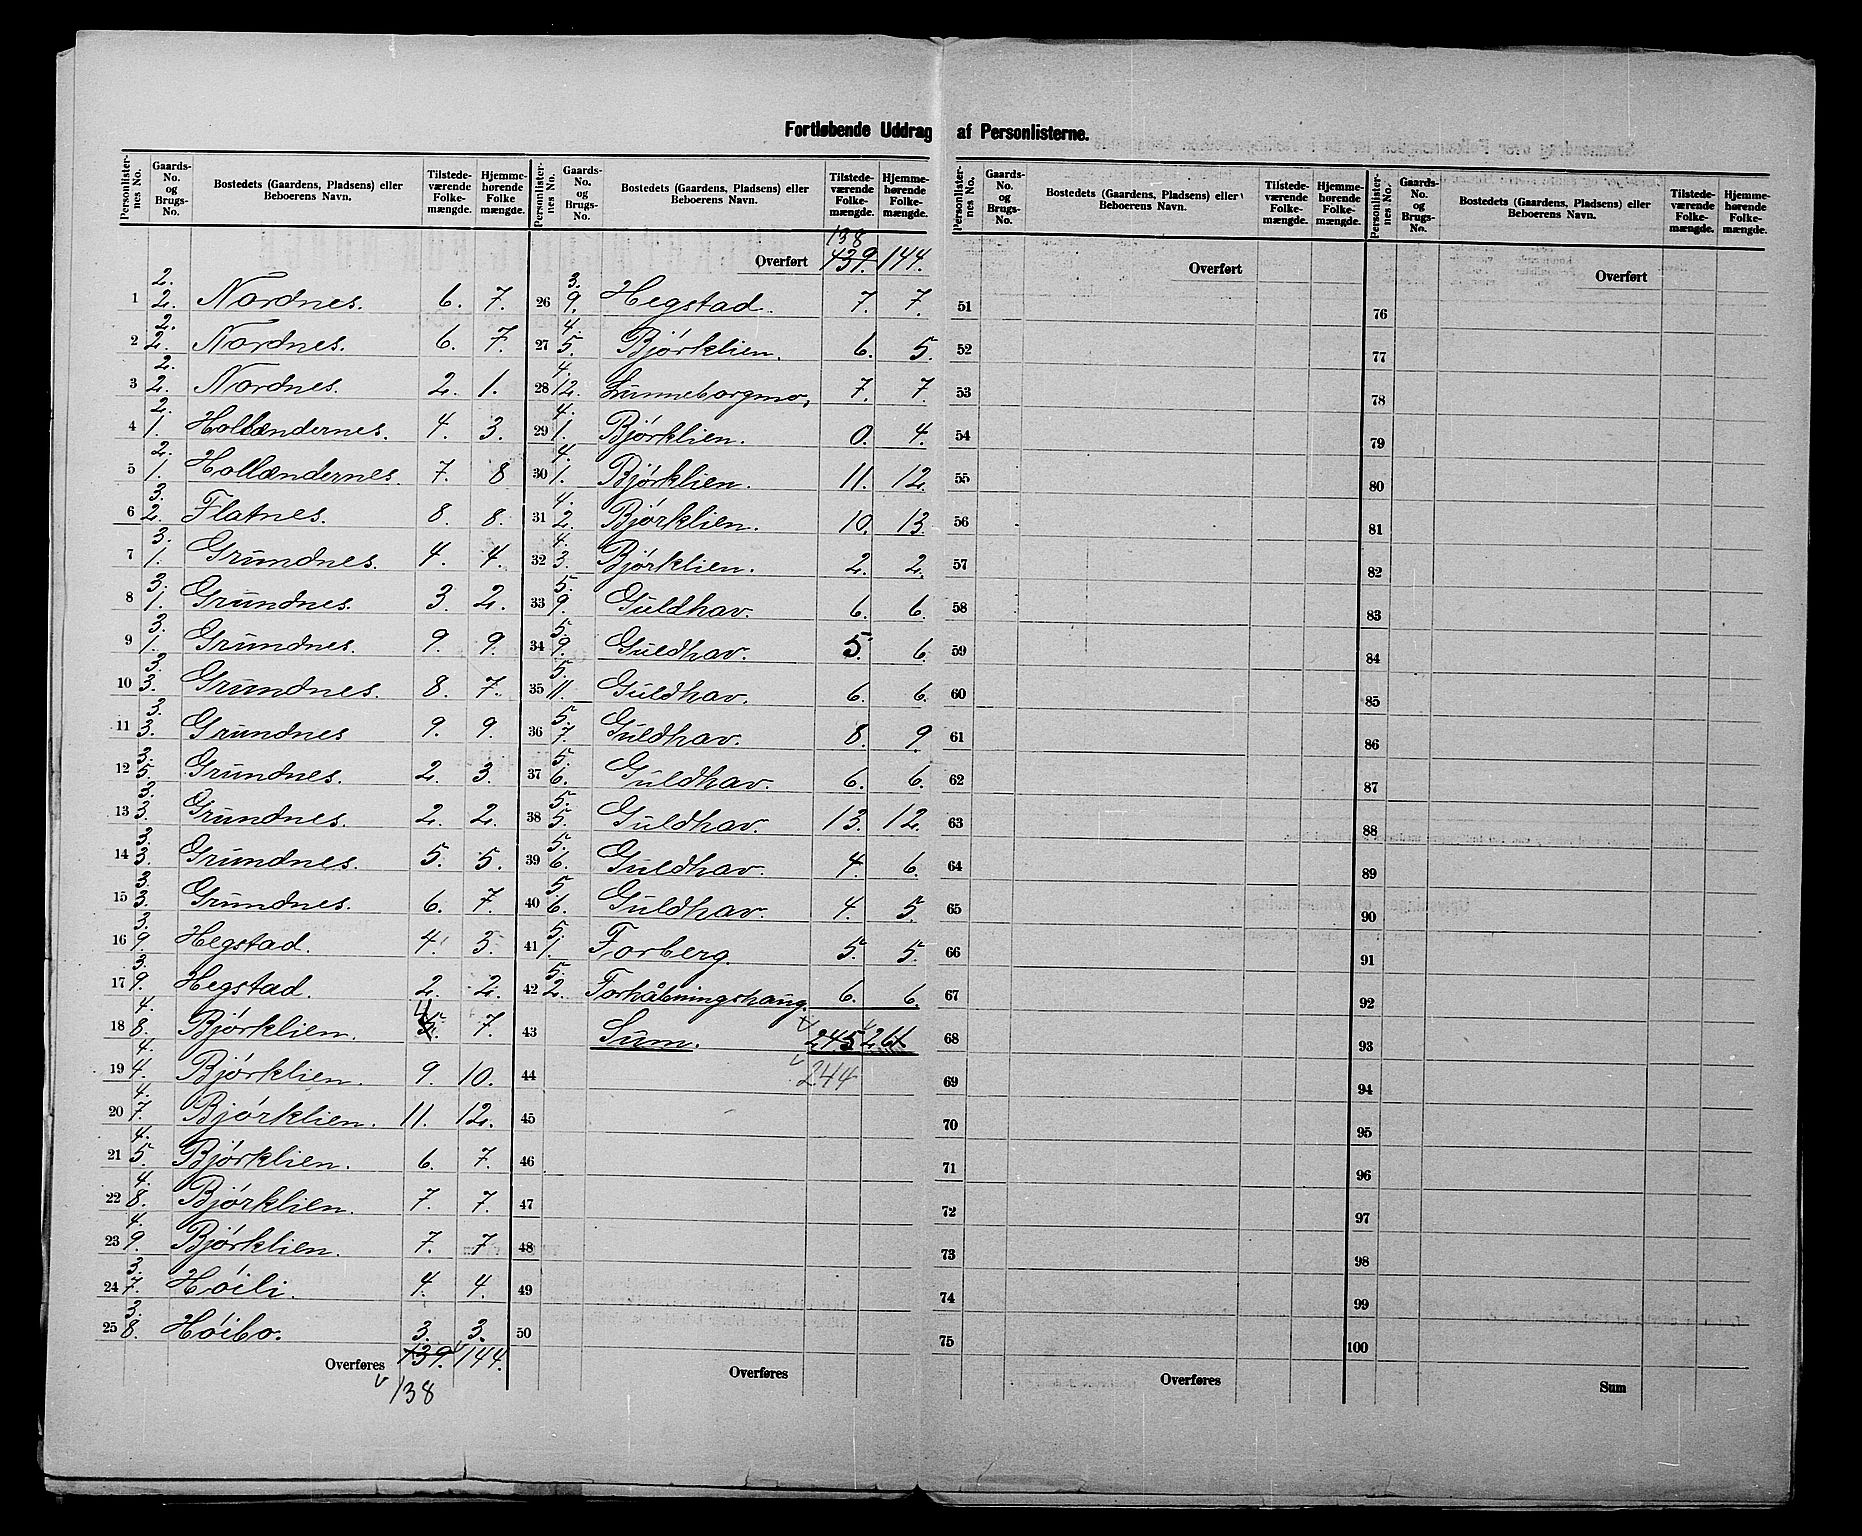 Fortløbende Uddrag af Personlisterne.
Personlister-nes No. | Gaards-No. og Brugs-No. | Bostedets (Gaardens, Pladsens) eller Beboerens Navn. | Tilstede-værende Folke-mængde. | Hjemme-hørende Folke mængde.
1 2. 2. Nordnes. 6. 7.
2 2. 2. Nordnes. 6. 7.
3 2. 2. Nordnes. 2. 1.
4 2. 1. Hollændernes. 4. 3.
5 2. 1. Hollændernes. 7. 8
6 3. 2. Flatnes. 8. 8.
7 3. 1. Grundnes. 4. 4.
8 3. 1. Grundnes. 3. 2.
9 3. 1. Grundnes. 9. 9.
10 3. 3. Grundnes. 8. 7.
11 3. 3. Grundnes 9. 9.
12 3. 5. Grundnes. 2. 3.
13 3. 3. Grundnes. 2. 2.
14 3. 3. Grundnes. 5. 5.
15 3. 3. Grundnes. 6. 7.
16 3. 9. Hegstad. 4. 3.
17 3. 9. Hegstad. 2. 2.
18 4. 8. Bjørklien. 4 7.
19 4. 4. Bjørklien. 9. 10.
20 4. 7. Bjørklien. 11. 12.
21 4. 5. Bjørklien. 6. 7.
22 4. 8. Bjørklien. 7. 7.
23 4. 9. Bjørklien. 7. 7
24 3. 7. Høili. 4. 4.
25 3. 8. Høibo. 3. 3.
Overføres 139. 144.
138
Personlister-nes No. | Gaards-No. og Brugs-No. | Bostedets (Gaardens, Pladsens) eller Beboerens Navn. | Tilstede-værende Folke-mængde. | Hjemme-hørende Folke-mængde.
138
Overført 139. 144.
26 3. 9. Hegstad. 7. 7.
27 4. 5. Bjørklien. 6. 5.
28 4. 12. Lunneborgmo, 7. 7.
29 4. 1. Bjørklien. 0. 4.
30 4. 1. Bjørklien. 11. 12.
31 4. 2. Bjørklien. 10. 13.
32 4. 3. Bjørklien. 2. 2.
33 5. 9. Guldhav. 6. 6.
34 5. 9. Guldhav. 5. 6
35 5. 11. Guldhav. 6. 6.
36 5. 7. Guldhav. 8. 9.
37 5. 6. Guldhav. 6. 6.
38 5. 5. Guldhav. 13. 12.
39 5. 6. Guldhav. 4. 6.
40 5. 6. Guldhav. 4. 5.
41 5. 1. Forberg. 5. 5.
42 5. 2. Forhåbningshaug. 6. 6.
43 Sum. 245 261.
44 244
45
46
47
48
49
50
Overføres
Personlister-nes No. | Gaards-No. og Brugs-No. | Bostedets (Gaardens, Pladsens) eller Beboerens Navn. | Tilstede-værende Folke-mængde. | Hjemme-hørende Folke-mængde.
Overført
51
52
53
54
55
56
57
58
59
60
61
62
63
64
65
66
67
68
69
70
71
72
73
74
75
Overføres
Personlister-nes No. | Gaards-No. og Brugs-No. | Bostedets (Gaardens, Pladsens) eller Beboerens Navn. | Tilstede-værende Folke-mængde. | Hjemme-hørende Folke-mængde.
Overført
76
77
78
79
80
81
82
83
84
85
86
87
88
89
90
91
92
93
94
95
96
97
98
99
100
Sum